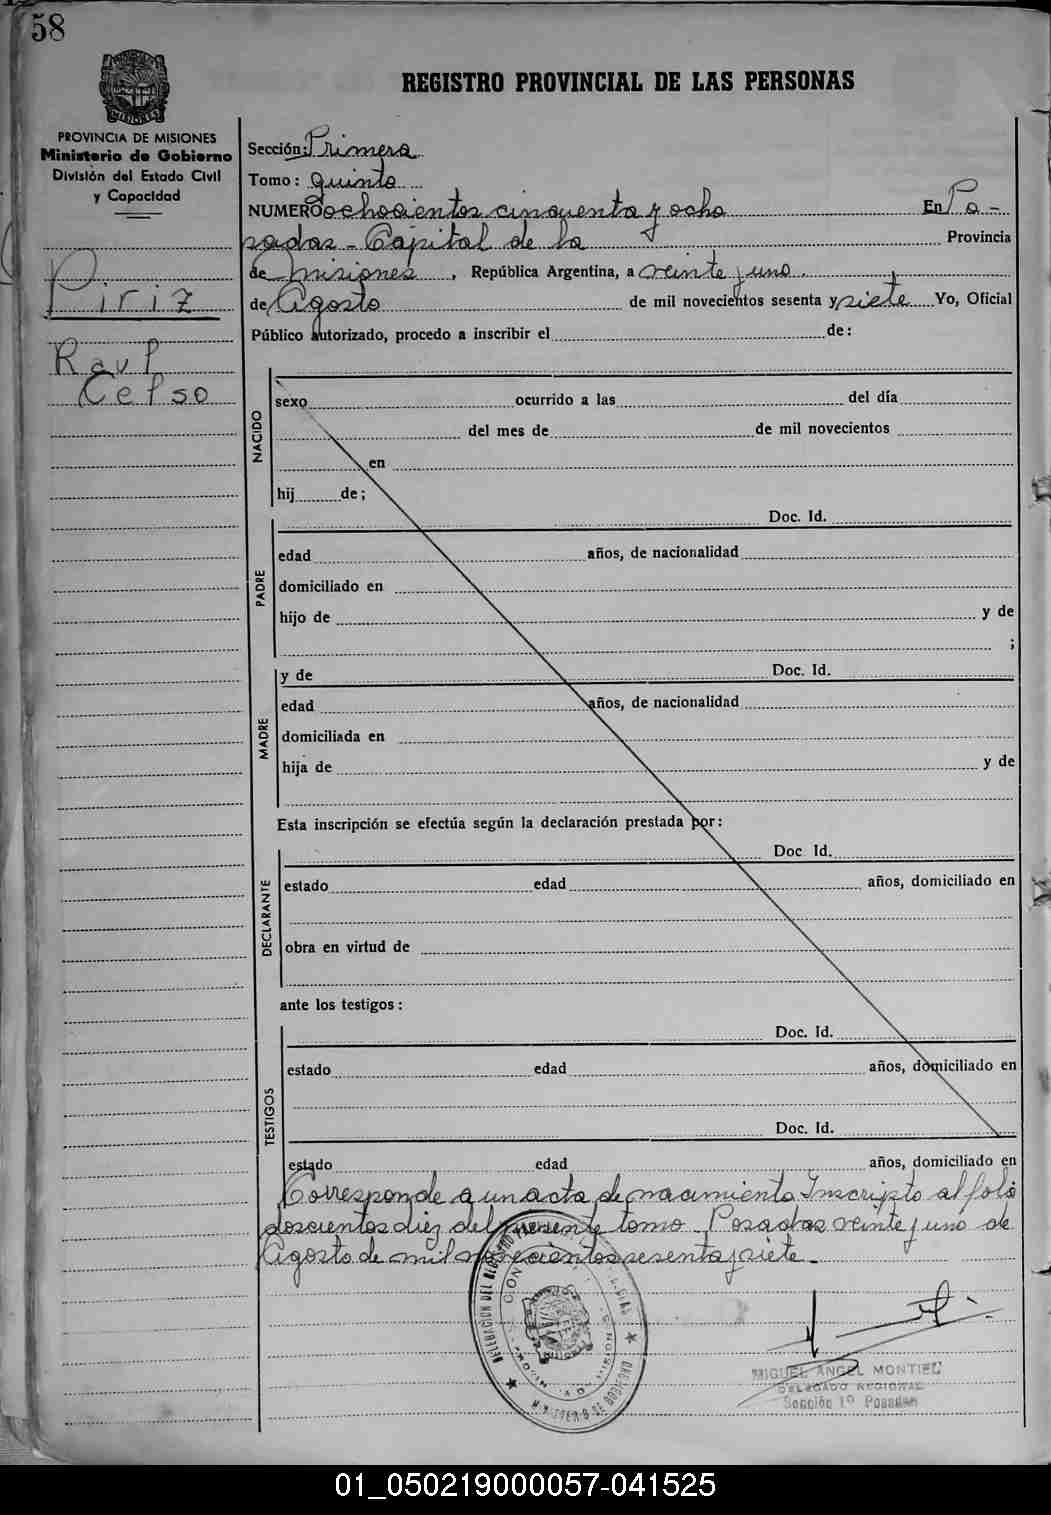 58
REGISTRO PROVINCIAL DE LAS PERSONAS
PROVINCIA DE MISIONES
Ministerio de Gobierno
División del Estado Civil
y Capacidad
Piriz
Raul
Celso
Sección: Primera
Tomo: quinto
NUMERO ochocientos cincuenta y ocho En Po-
sadas - Capital de la Provincia
de Misiones, República Argentina, a veinte y uno
de Agosto de mil novecientos sesenta y siete Yo, Oficial
Público autorizado, procedo a inscribir el de:
NACIDO
sexo ocurrido a las del día
del mes de de mil novecientos
en
hij de;
PADRE
Doc. Id.
edad años, de nacionalidad
domiciliado en
hijo de y de
;
MADRE
y de Doc. Id.
edad años, de nacionalidad
domiciliada en
hija de y de
Esta inscripción se efectúa según la declaración prestada por:
DECLARANTE
Doc Id.
estado edad años, domiciliado en
obra en virtud de
ante los testigos:
TESTIGOS
Doc. Id.
estado edad años, domiciliado en
Doc. Id.
estado edad años, domiciliado en
Corresponde a un acta de nacimiento Inscripto al folio
doscientos diez del presente tomo Posadas veinte y uno de
Agosto de mil novecientos sesenta y siete.-
DELEGACION DEL REGISTRO
MIGUEL ANGEL MONTIEL
DELEGADO REGIONAL
Sección 1º Posadas
01_050219000057-041525